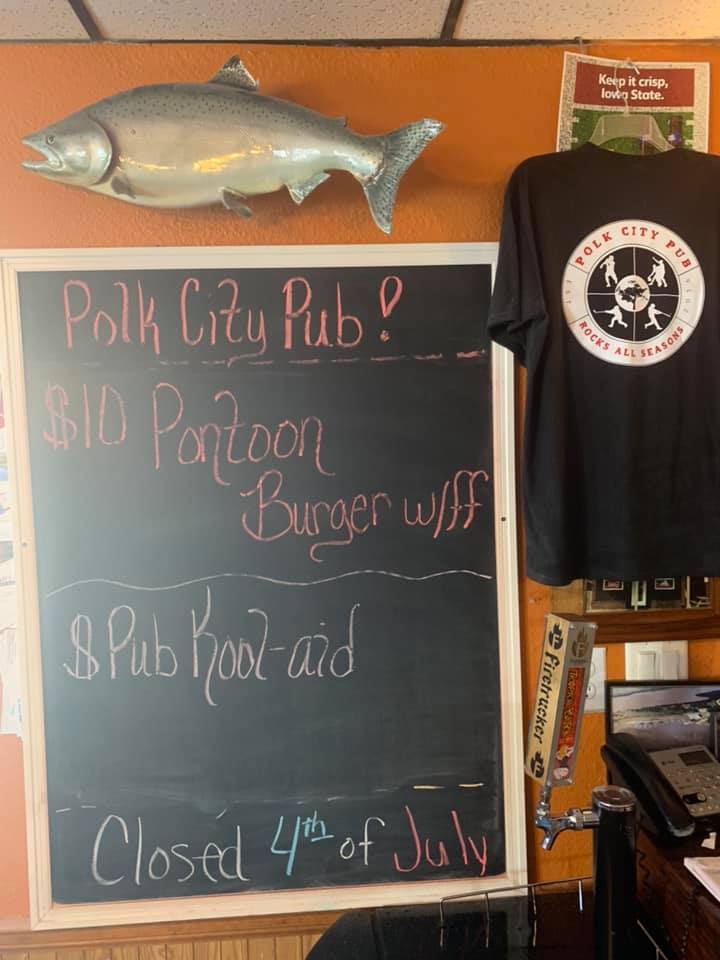 Keep it crisp,
Iowa State.
POLK CITY PUB
ROCKS ALL SEASONS
Polk City Pub!
$10 Pontoon
Burger w/ff
$ Pub Kool-aid
Closed 4th of July
Firetrucker